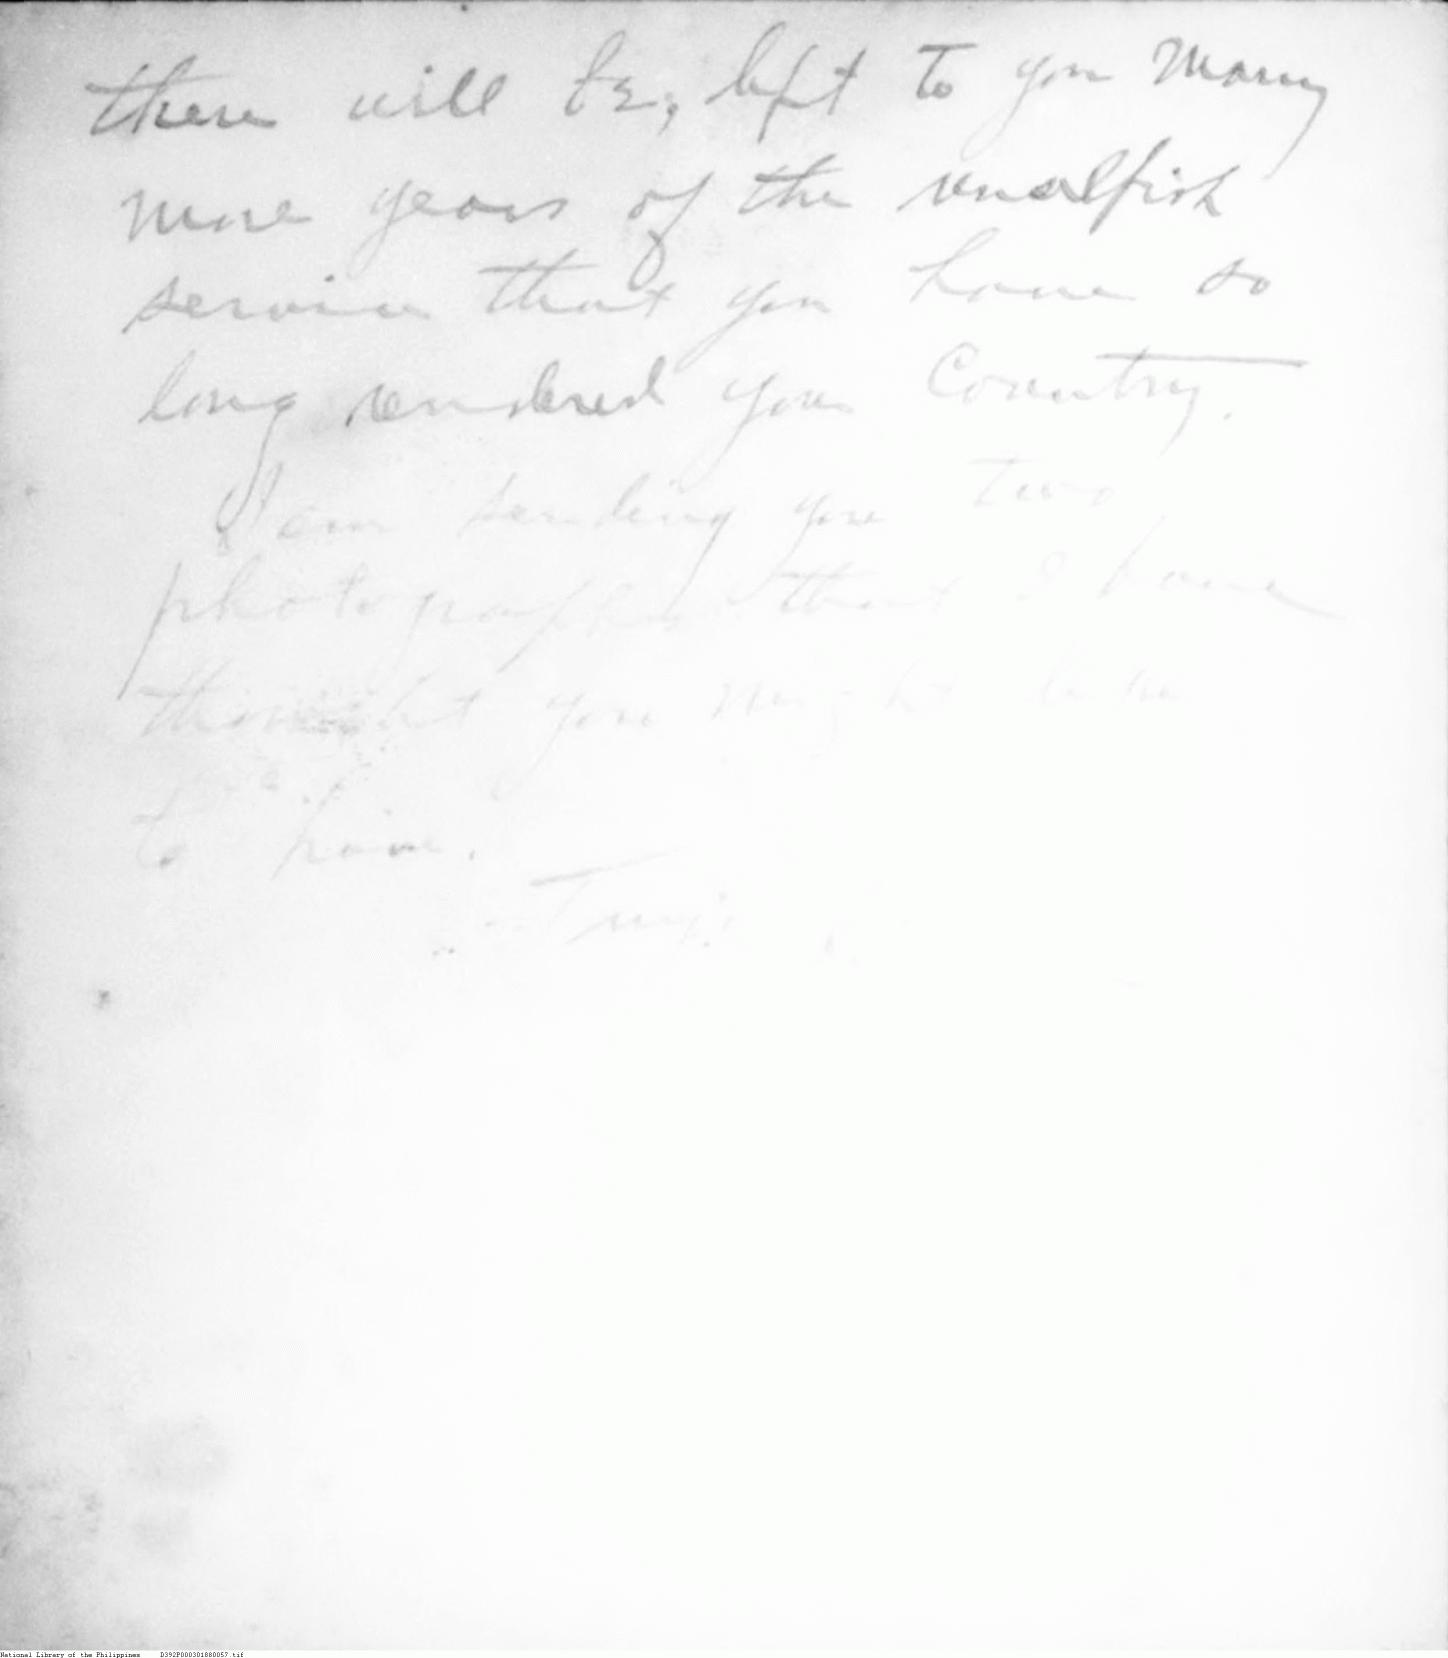 there will be, left to you many
more years of the unselfish
service that you have so
long rendered your Country.
I am sending you two
photographs that I have
thought you might like
to have.
National Library of the Philippines D392P000301880057.tif